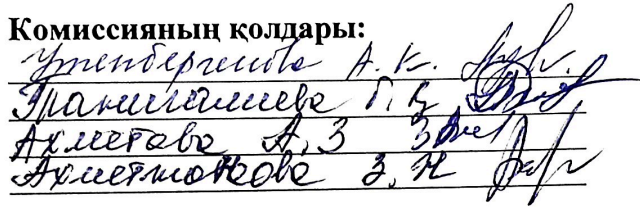 Комиссияның қолдары:
Утенбергенова А. К.
Гранигалиева Г, Қ
Ахметова А, З
Ахметжанова З, Н